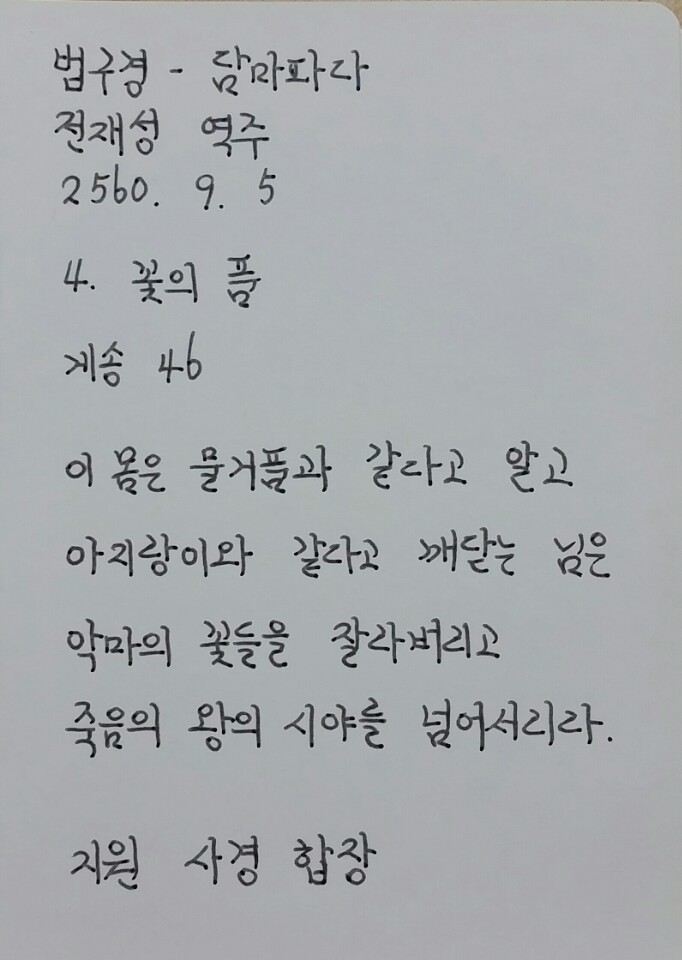 법구경 - 담마파다
전재성 역주
2560. 9. 5
4. 꽃의 품
게송 46
이 몸은 물거품과 같다고 알고
아지랑이와 같다고 깨닫는 님은
악마의 꽃들을 잘라버리고
죽음의 왕의 시야를 넘어서리라.
지원 사경 합장